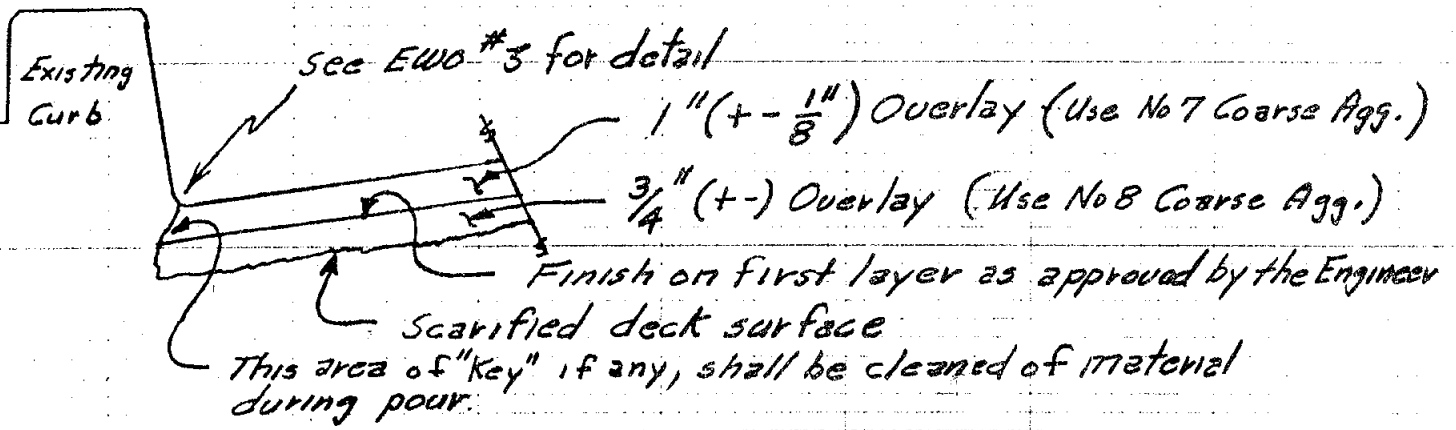 Existing
Curb
See EWO #3 for detail
1" (+- 1/8") Overlay (Use No 7 Coarse Agg.)
3/4" (+-) Overlay (Use No 8 Coarse Agg.)
Finish on first layer as approved by the Engineer
Scarified deck surface
This area of "Key" if any, shall be cleaned of material
during pour.